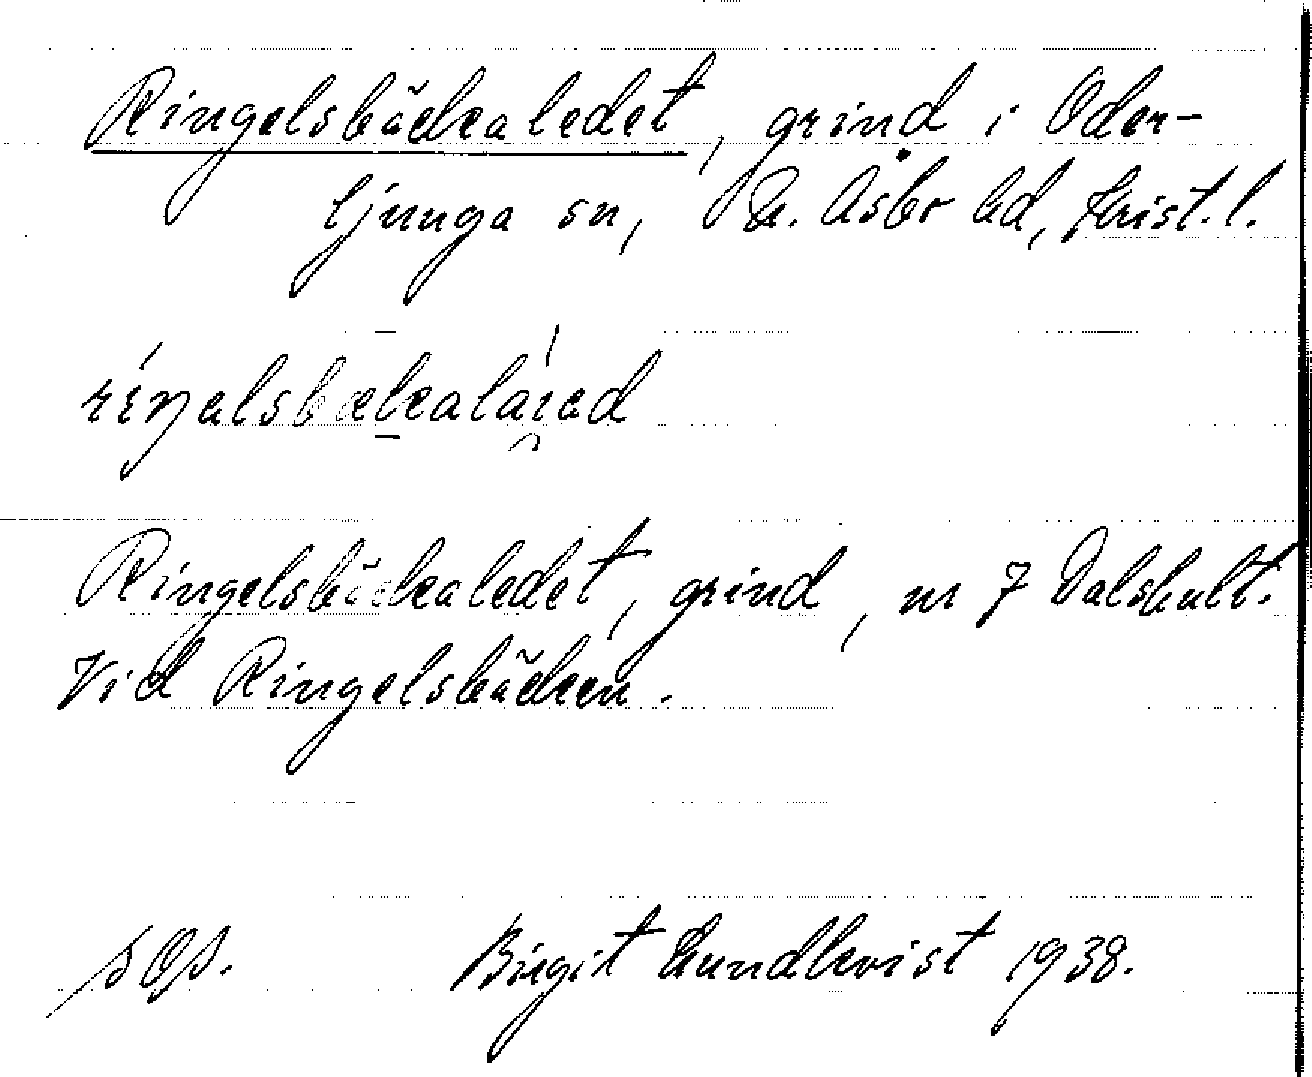 Ringelsbäckaledet, grind i Oder-
ljunga sn, N. Åsbo hd, Krist. l.
Ringelsbäckaledet, grind, nr 7 Dalshult.
Vid Ringelsbäcken.
Birgit Lundkvist 1938.